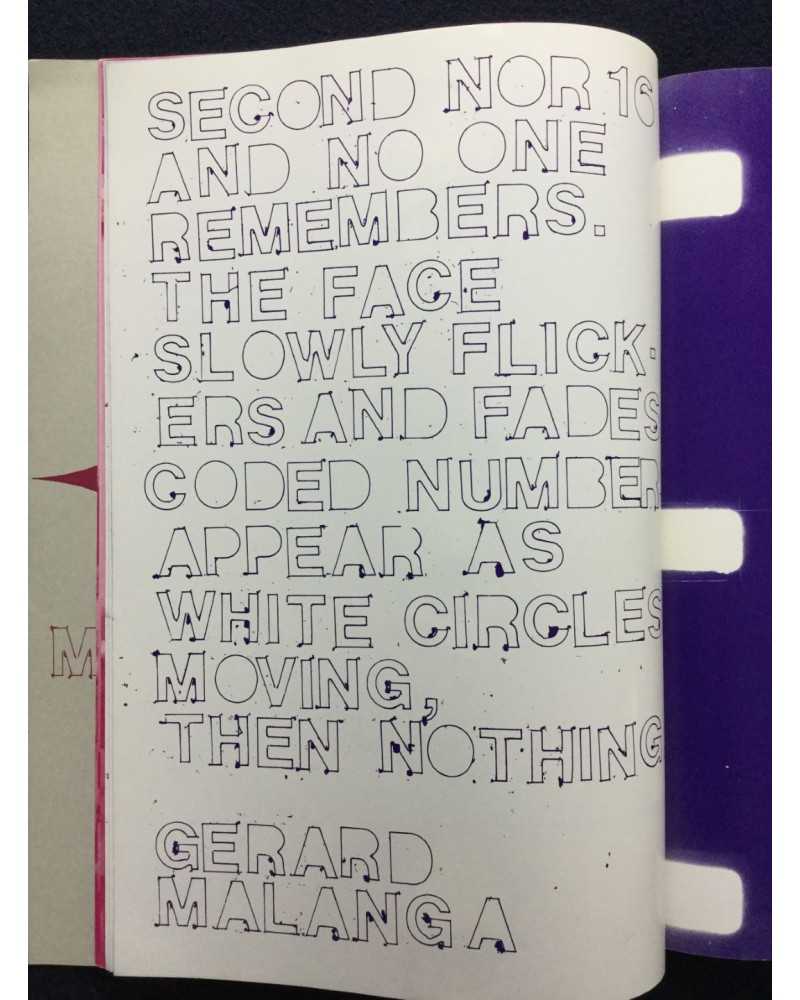 SECOND NOR 16
AND NO ONE
REMEMBERS.
THE FACE
SLOWLY FLICK-
ERS AND FADES
CODED NUMBER
APPEAR AS
WHITE CIRCLES
MOVING,
THEN NOTHING
GERARD
MALANGA
M